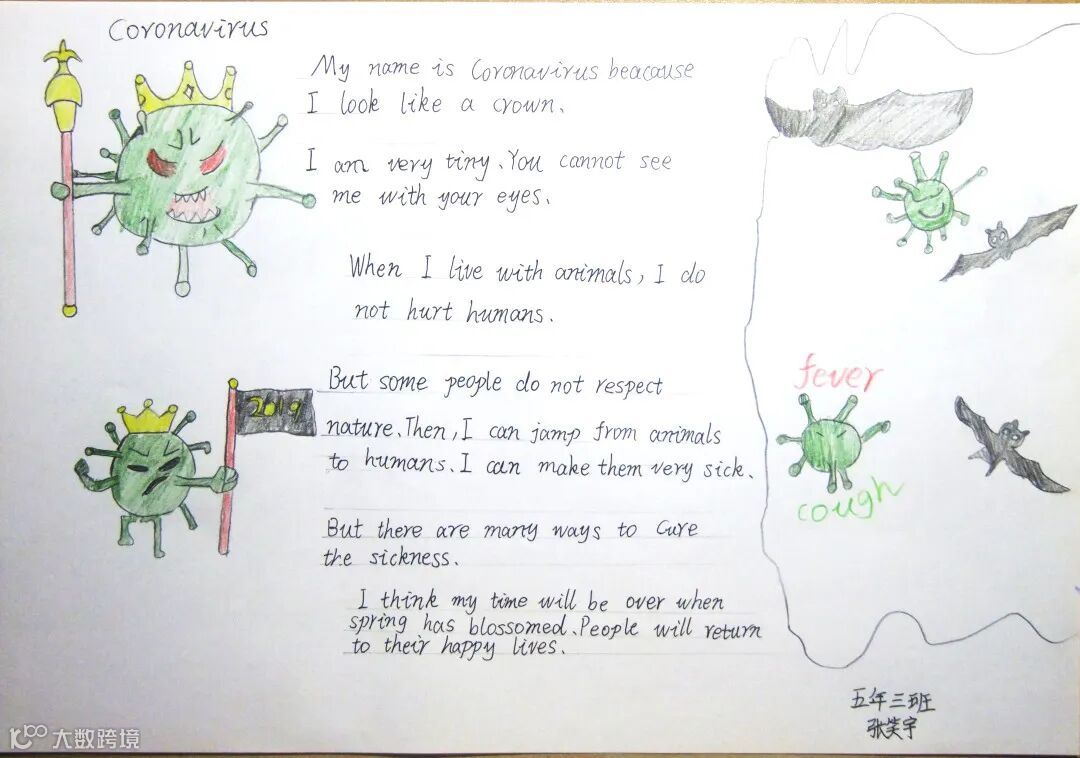 Coronavirus
My name is Coronavirus beacause
I look like a crown.
I am very tiny. You cannot see
me with your eyes.
When I live with animals, I do
not hurt humans.
But some people do not respect
nature. Then, I can jamp from animals
to humans. I can make them very sick.
But there are many ways to cure
the sickness.
I think my time will be over when
spring has blossomed. People will return
to their happy lives.
2019
fever
cough
五年三班
张笑宇
大数跨境